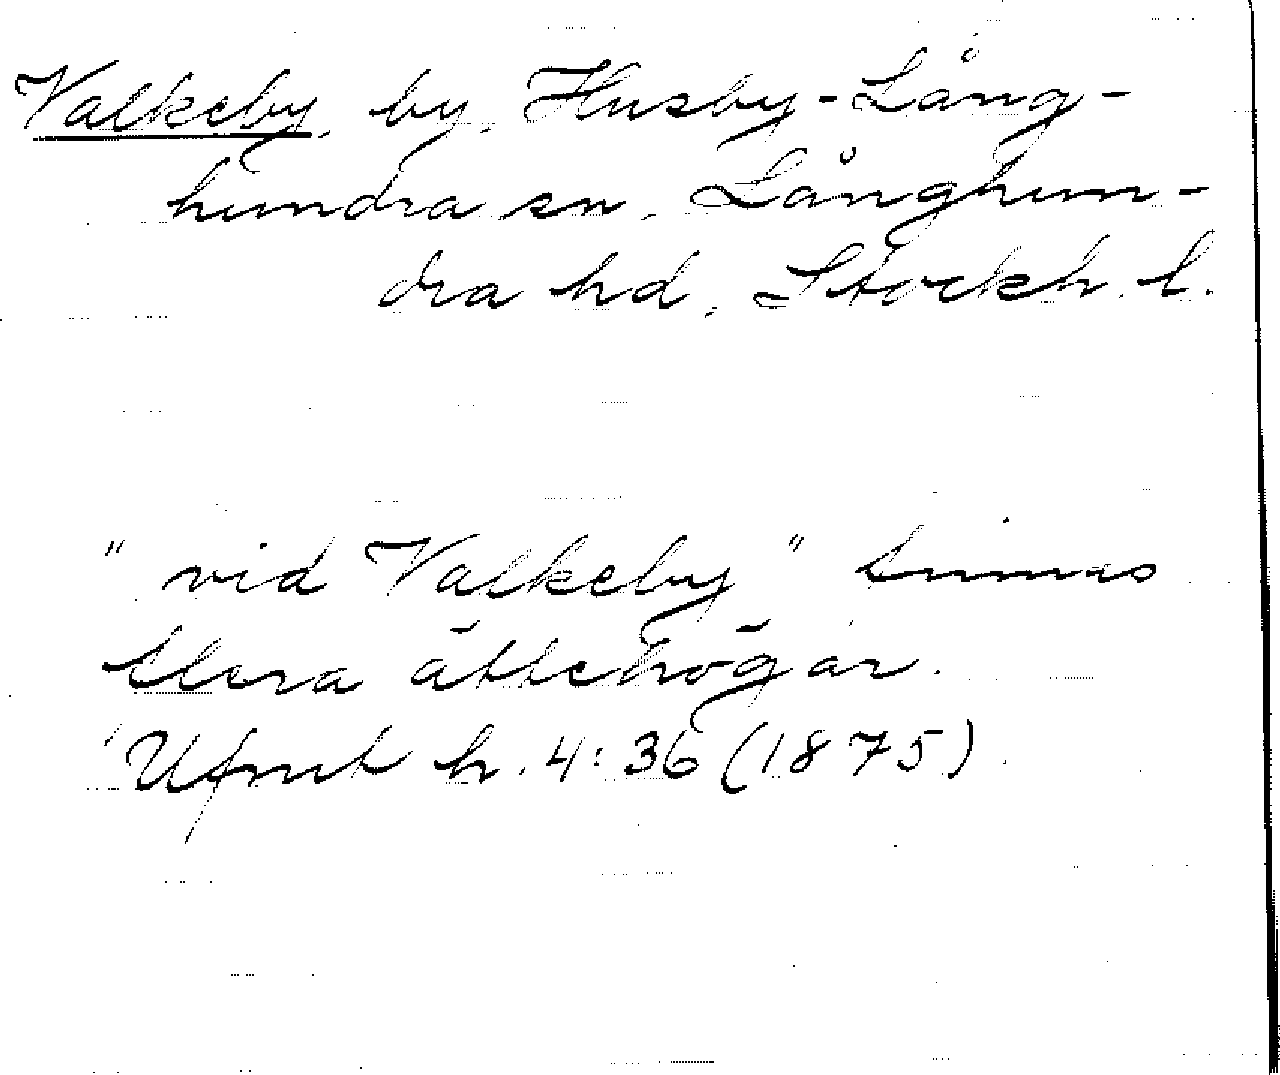 Valkeby, by, Husby-Lång-
hundra sn, Långhun-
dra hd, Stockh. l.
" vid Valkeby " finnas
flera ättehögar.
Ufmt h. 4: 36 (1875)